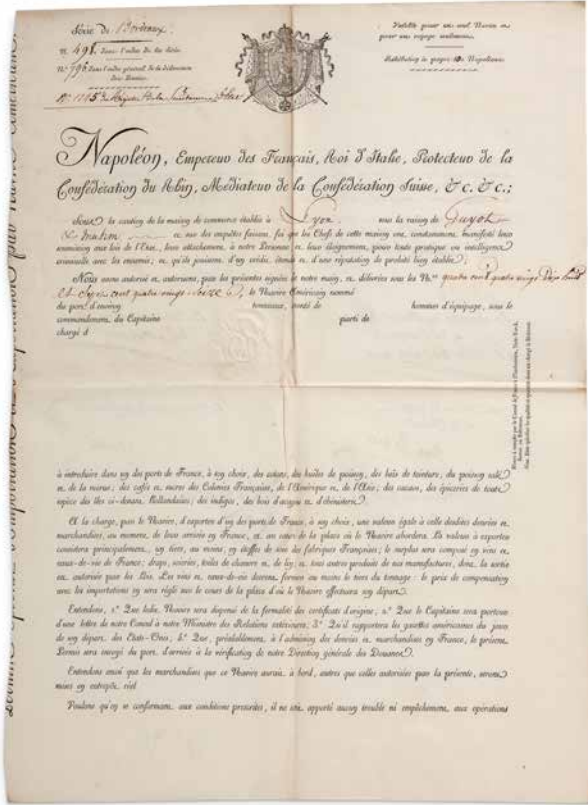 Série de Bordeaux.
N.° 498. dans l'ordre de la Série.
N.° 796 dans l'ordre général de la délivrance
des Licences.
Valable pour un seul Navire et
pour un voyage seulement.
Rétribution à payer: 30 Napoléons.
Napoléon, Empereur des Français, Roi d'Italie, Protecteur de la
Confédération du Rhin, Médiateur de la Confédération Suisse, &c. &c.;
Sous la caution de la maison de commerce établie à Lyon sous la raison de Guyot
et sur des enquêtes faisant foi que les Chefs de cette maison ont constamment manifesté leur
soumission aux lois de l'État, leur attachement à notre Personne et leur éloignement pour toute pratique ou intelligence
criminelle avec les ennemis; et qu'ils jouissent d'un crédit étendu et d'une réputation de probité bien établie;
Nous avons autorisé et autorisons, par les présentes signées de notre main, et délivrées sous les N.os quatre cent quatre vingt dix huit
et sept cent quatre vingt seize, le Navire Américain nommé
du port d'environ tonneaux, monté de hommes d'équipage, sous le
commandement du Capitaine parti de
chargé d
à introduire dans un des ports de France, à son choix, des cotons, des huiles de poisson, des bois de teinture, du poisson salé
et de la morue; des cafés et sucres des Colonies Françaises, de l'Amérique et de l'Asie; des cacaos, des épiceries de toute
espèce des îles ci-devant Hollandaises; des indigos, des bois d'acajou et d'ébénisterie.
A la charge, par le Navire, d'exporter d'un des ports de France, à son choix, une valeur égale à celle desdites denrées et
marchandises, au moment de leur arrivée en France, et au cours de la place où le Navire abordera. La valeur à exporter
consistera principalement, un tiers, au moins, en étoffes de soie des fabriques Françaises; le surplus sera composé en vins et
eaux-de-vie de France; draps, soieries, toiles de chanvre et de lin, et tous autres produits de nos manufactures, dont la sortie
est autorisée par les Lois. Les vins et eaux-de-vie devront former au moins le tiers du tonnage: le prix de compensation
avec les importations en sera réglé sur le cours de la place d'où le Navire effectuera son départ.
Entendons, 1.° Que ledit Navire sera dispensé de la formalité des certificats d'origine; 2.° Que le Capitaine sera porteur
d'une lettre de notre Consul à notre Ministre des Relations extérieures; 3.° Qu'il rapportera les gazettes américaines du jour
de son départ des États-Unis; 4.° Que, préalablement à l'admission des denrées et marchandises en France, le présent
Permis sera envoyé du port d'arrivée à la vérification de notre Direction générale des Douanes.
Entendons aussi que les marchandises que ce Navire aurait à bord, autres que celles autorisées par la présente, seront
mises en entrepôt réel
Voulons qu'en se conformant aux conditions prescrites, il ne soit apporté aucun trouble ni empêchement aux opérations